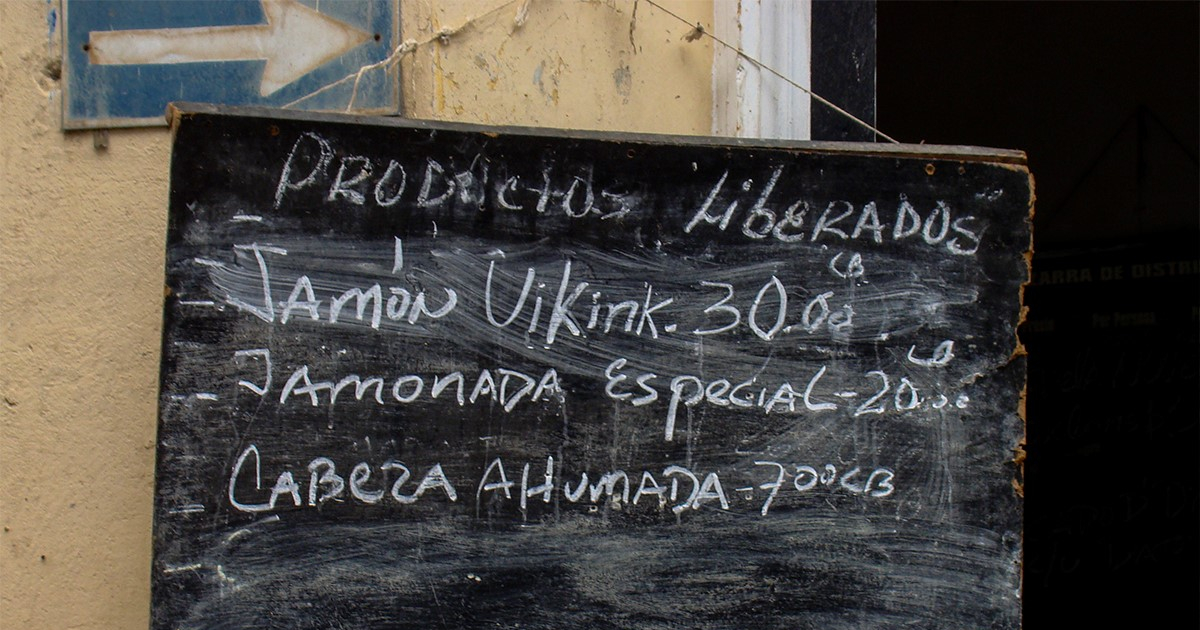 PRODUCTOS LIBERADOS
JAMÓN ViKink. 30.00 LB
JAMONADA EspeciAL-20.00 LB
CABEZA AHUMADA-700 LB
ARRA DE DISTRI